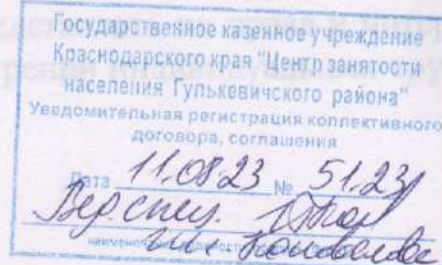 Государственное казенное учреждение
Краснодарского края "Центр занятости
населения Гулькевичского района"
Уведомительная регистрация коллективного
договора, соглашения
Дата 11.08.23 № 51.23
Вед. спец.